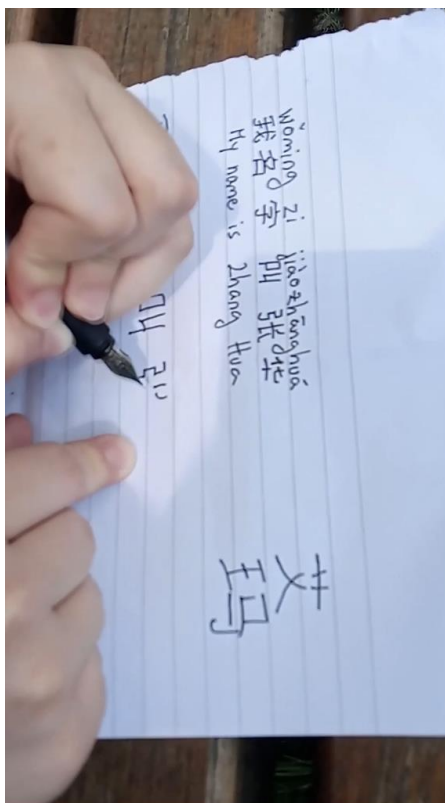 wǒming zi jiàozhānghuá
我名字叫张华
My name is Zhang Hua
叫
艾
玛